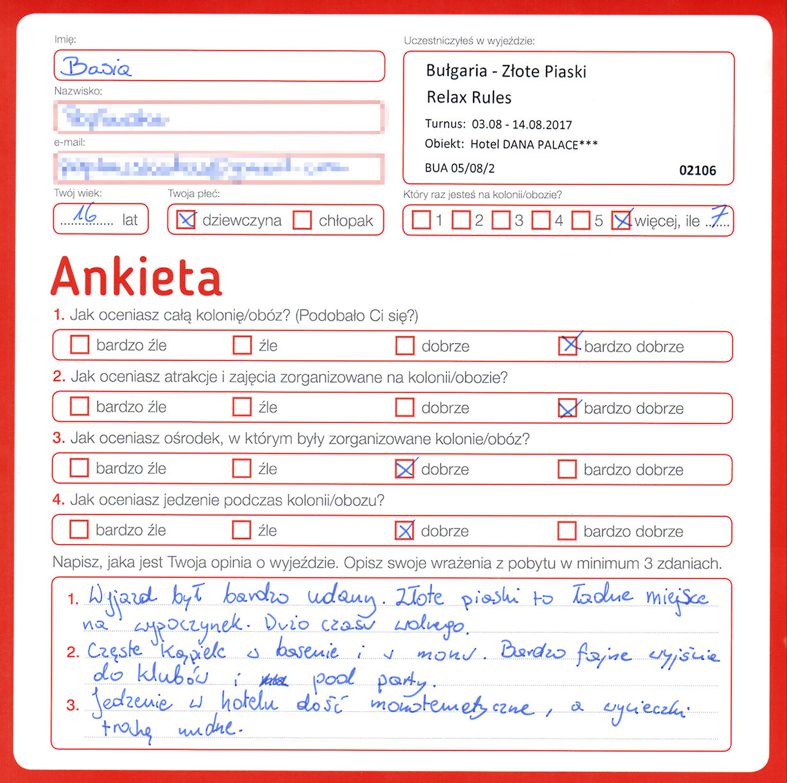 Imię:
Basia
Nazwisko:
e-mail:
Twój wiek:
16 lat
Twoja płeć:
dziewczyna chłopak
Uczestniczyłeś w wyjeździe:
Bułgaria - Złote Piaski
Relax Rules
Turnus: 03.08 - 14.08.2017
Obiekt: Hotel DANA PALACE***
BUA 05/08/2 02106
Który raz jesteś na kolonii/obozie?
1 2 3 4 5 więcej, ile 7
Ankieta
1. Jak oceniasz całą kolonię/obóz? (Podobało Ci się?)
bardzo źle źle dobrze bardzo dobrze
2. Jak oceniasz atrakcje i zajęcia zorganizowane na kolonii/obozie?
bardzo źle źle dobrze bardzo dobrze
3. Jak oceniasz ośrodek, w którym były zorganizowane kolonie/obóz?
bardzo źle źle dobrze bardzo dobrze
4. Jak oceniasz jedzenie podczas kolonii/obozu?
bardzo źle źle dobrze bardzo dobrze
Napisz, jaka jest Twoja opinia o wyjeździe. Opisz swoje wrażenia z pobytu w minimum 3 zdaniach.
1. Wyjazd był bardzo udany. Złote piaski to ładne miejsce
na wypoczynek. Dużo czasu wolnego.
2. Częste kąpiele w basenie i w morzu. Bardzo fajne wyjście
do klubów i pool party.
3. Jedzenie w hotelu dość monotematyczne, a wycieczki
trochę nudne.